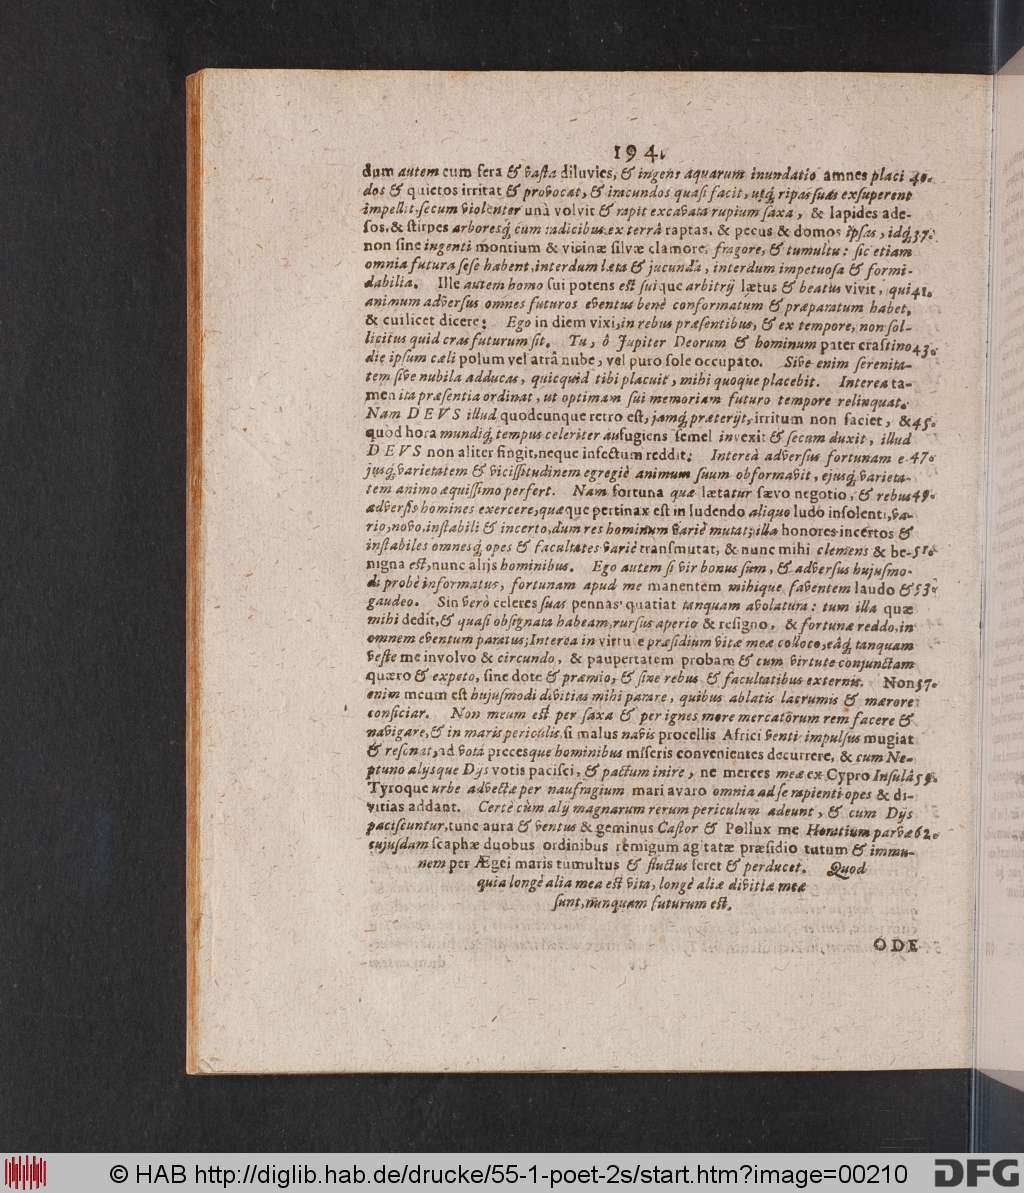 194.
dum autem cum fera & vasta diluvies, & ingens aquarum inundatio amnes placi 40.
dos & quietos irritat & provocat, & iracundos quasi facit, utq́; ripas suas exsuperent
impellit, secum violenter unà volvit & rapit excavata rupium saxa, & lapides ade-
sos, & stirpes arboresq́; cum radicibus ex terrâ raptas, & pecus & domos ipsas, idq́; 37.
non sine ingenti montium & vicinæ silvæ clamore, fragore, & tumultu: sic etiam
omnia futura sese habent, interdum læta & jucunda, interdum impetuosa & formi-
dabilia. Ille autem homo sui potens est suique arbitrij lætus & beatus vivit, qui 41.
animum adversus omnes futuros eventus benè conformatum & præparatum habet,
& cui licet dicere: Ego in diem vixi, in rebus præsentibus, & ex tempore, non sol-
licitus quid cras futurum sit. Tu, ô Jupiter Deorum & hominum pater crastino 43.
die ipsum cæli polum vel atrâ nube, vel puro sole occupato. Sive enim serenita-
tem sive nubila adducas, quicquid tibi placuit, mihi quoque placebit. Interea ta-
men ita præsentia ordinat, ut optimam sui memoriam futuro tempore relinquat.
Nam DEVS illud quodcunque retro est, jamq́; præterijt, irritum non faciet, & 45.
quod hora mundiq́; tempus celeriter aufugiens semel invexit & secum duxit, illud
DEVS non aliter fingit, neque infectum reddit; Intereà adversus fortunam e 47.
jusq́; varietatem & vicissitudinem egregiè animum suum obformavit, ejusq́; varieta-
tem animo æquissimo perfert. Nam fortuna quæ lætatur sævo negotio, & rebus 49.
adversis homines exercere, quæque pertinax est in ludendo aliquo ludo insolenti, va-
rio, novo, instabili & incerto, dum res hominum variè mutat; illa honores incertos &
instabiles omnesq́; opes & facultates variè transmutat, & nunc mihi clemens & be- 51.
nigna est, nunc alijs hominibus. Ego autem si vir bonus sum, & adversus hujusmo-
di probè informatus, fortunam apud me manentem mihique faventem laudo & 53.
gaudeo. Sin verò celeres suas pennas quatiat tanquam avolatura: tum illa quæ
mihi dedit, & quasi obsignata habeam, rursus aperio & resigno, & fortunæ reddo, in
omnem eventum paratus; Interea in virtute præsidium vitæ meæ colloco, eâq́; tanquam
veste me involvo & circundo, & paupertatem probam & cum virtute conjunctam
quæro & expeto, sine dote & præmio, & sine rebus & facultatibus externis. Non 57.
enim meum est hujusmodi divitias mihi parare, quibus ablatis lacrumis & mærore
conficiar. Non meum est per saxa & per ignes more mercatorum rem facere &
navigare, & in maris periculis, si malus navis procellis Africi venti impulsus mugiat
& resonat, ad vota precesque hominibus miseris convenientes decurrere, & cum Ne-
ptuno alysque Dijs votis pacisci, & pactum inire, ne merces meæ ex Cypro Insulâ 59.
Tyroque urbe advectæ per naufragium mari avaro omnia ad se rapienti opes & di-
vitias addant. Certè cùm alij magnarum rerum periculum adeunt, & cum Dijs
paciscuntur, tunc aura & ventus & geminus Castor & Pollux me Horatium parvæ 62.
cujusdam scaphæ duobus ordinibus remigum agitatæ præsidio tutum & immu-
nem per Ægei maris tumultus & fluctus feret & perducet. Quod
quia longè alia mea est vita, longè aliæ divitiæ meæ
sunt, nunquam futurum est.
ODE
© HAB http://diglib.hab.de/drucke/55-1-poet-2s/start.htm?image=00210
DFG